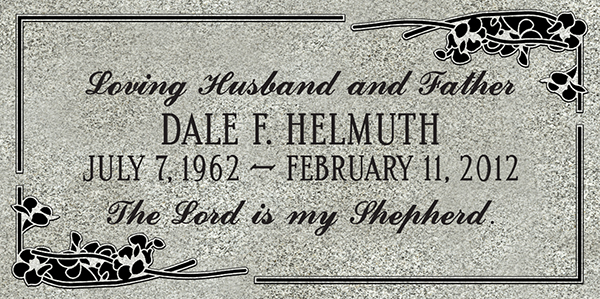 Loving Husband and Father
DALE F. HELMUTH
JULY 7, 1962 ~ FEBRUARY 11, 2012
The Lord is my Shepherd.